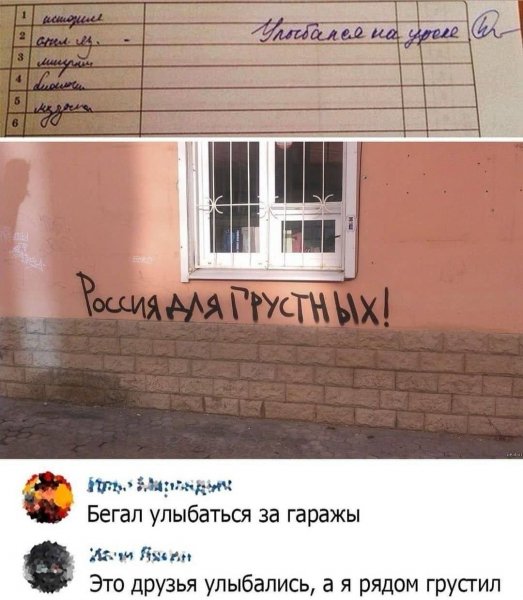 1 история
2 англ. яз. -
Улыбался на уроке
3
4
5
6
Россия для грустных!
Бегал улыбаться за гаражы
Это друзья улыбались, а я рядом грустил